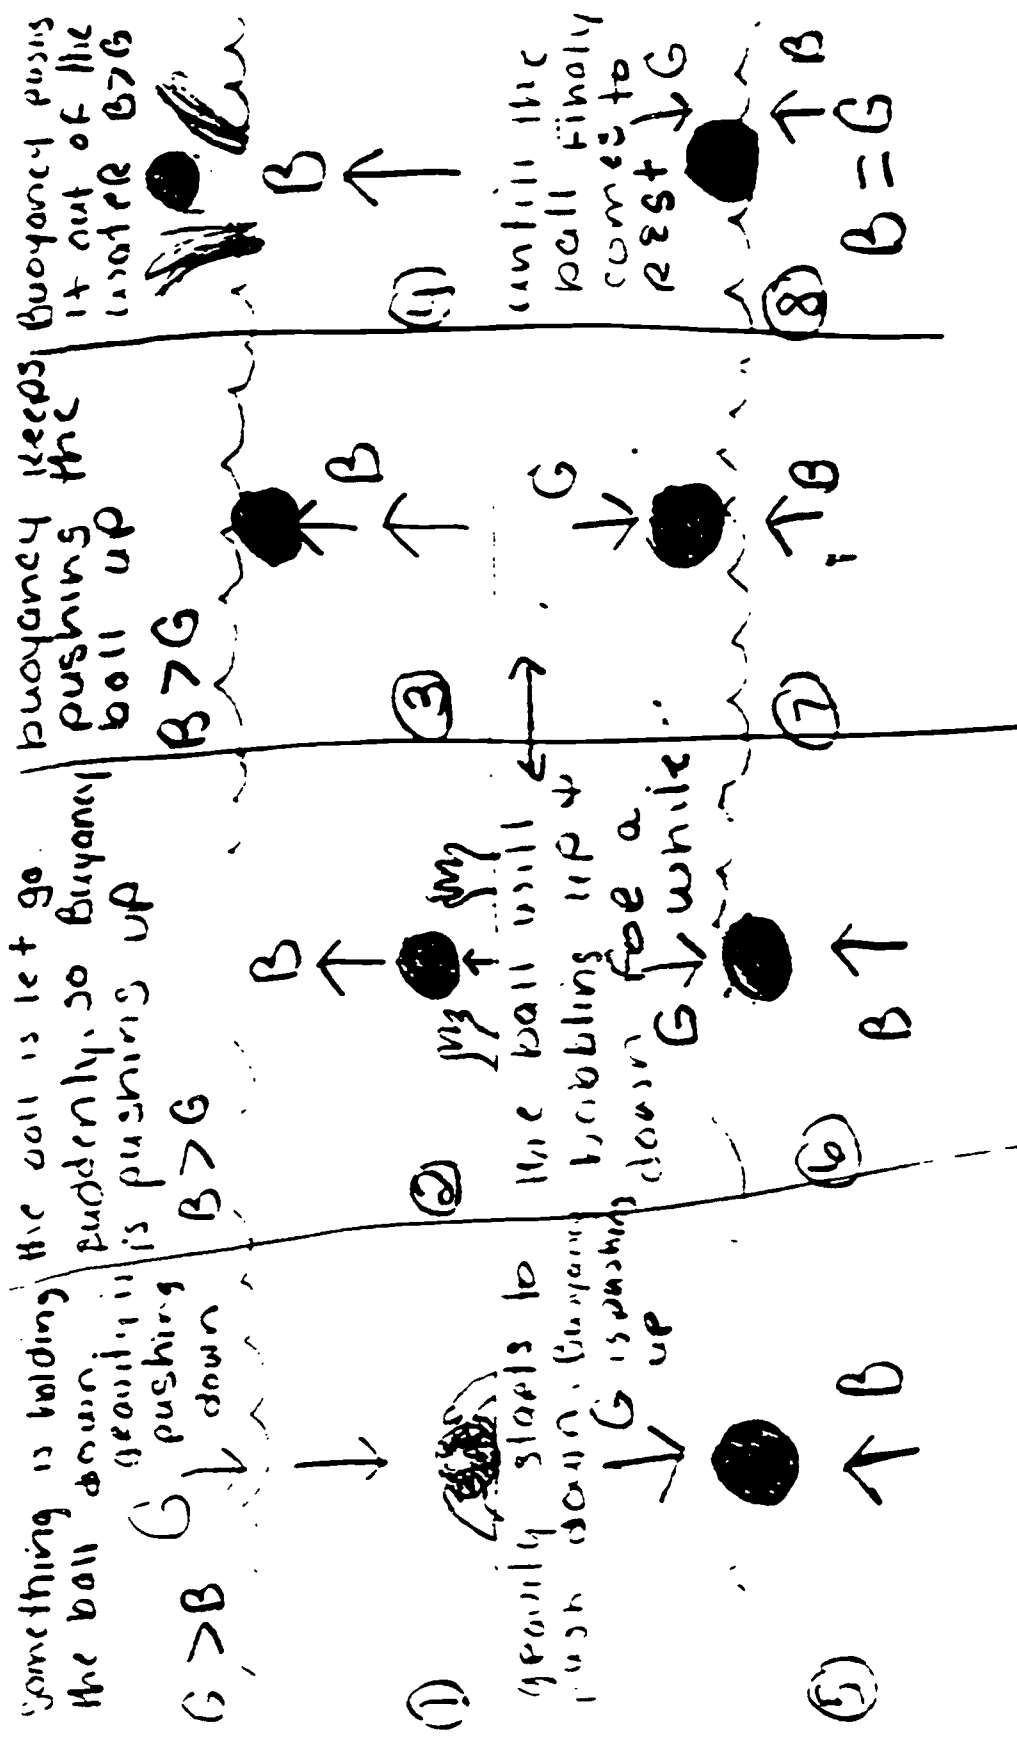 Something is holding
the ball down.
gravity is
pushing
down
G
G > B
①
the ball is let go
suddenly, so Buyancy
is pushing up
B > G
B
②
buoyancy keeps
pushing the
ball up
B > G
B
③
Buoyancy push
it out of the
water B > G
B
④
gravity starts to
push down. Buyancy
is pushing
up
G
B
⑤
the ball will
bobbling up &
down for a
while..
G
B
⑥
G
B
⑦
untill the
ball finaly
comes to
rest
G
B
B = G
⑧